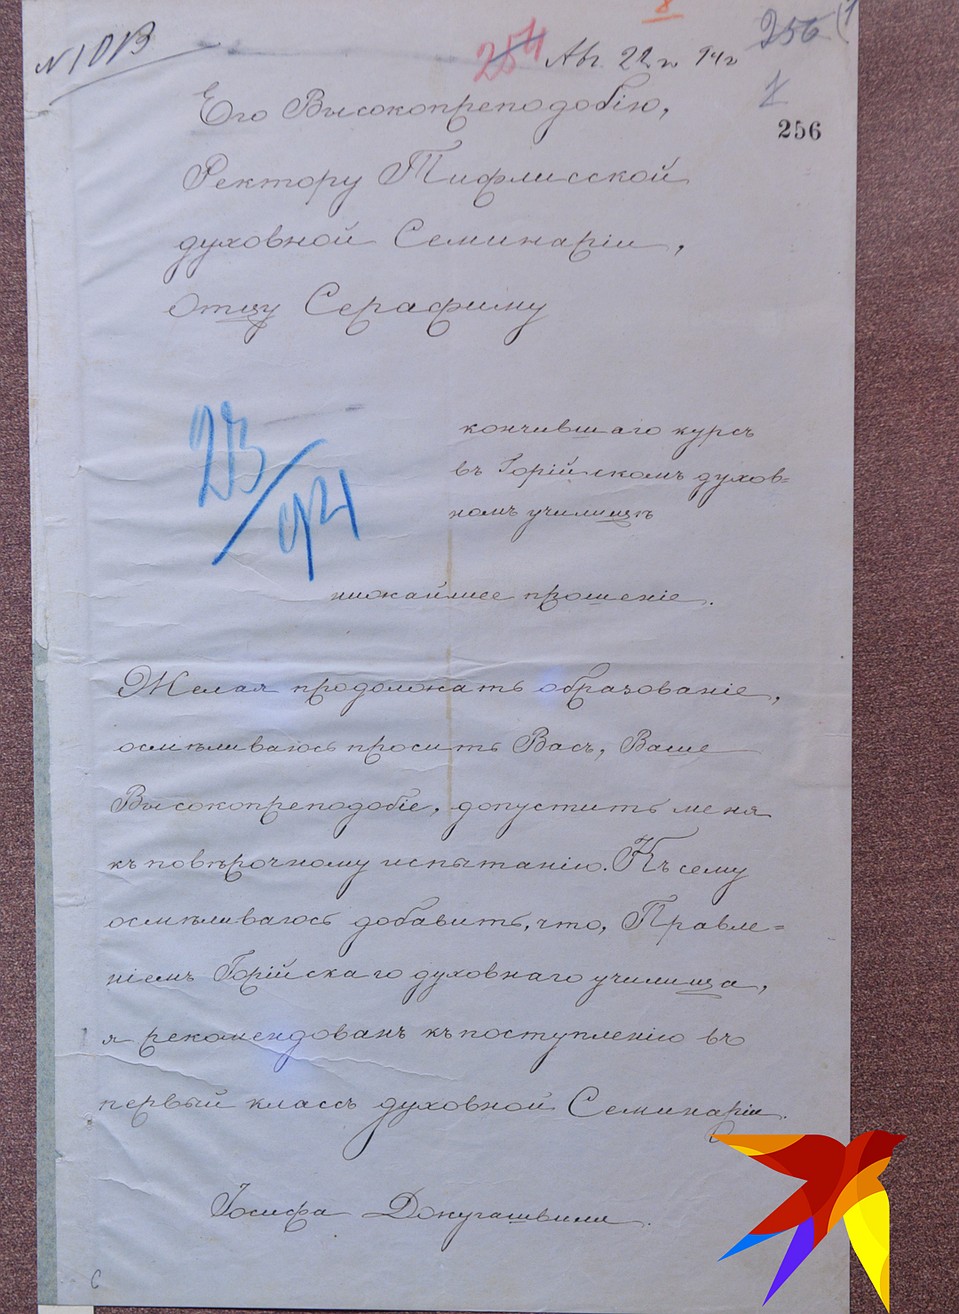 N 1013
254 Авг. 22 го 94 г
256
256
Его Высокопреподобію,
Ректору Тифлисской
духовной Семинаріи,
Отцу Серафиму
23/94
кончившаго курсъ
въ Горійскомъ духов-
номъ училищѣ
нижайшее прошеніе.
Желая продолжать образованіе,
осмѣливаюсь просить Васъ, Ваше
Высокопреподобіе, допустить меня
къ повѣрочному испытанію. Къ сему
осмѣливаюсь добавить, что, Правле-
ніемъ Горійскаго духовнаго училища,
я рекомендованъ къ поступленію въ
первый классъ духовной Семинаріи.
Іосифа Джугашвили.